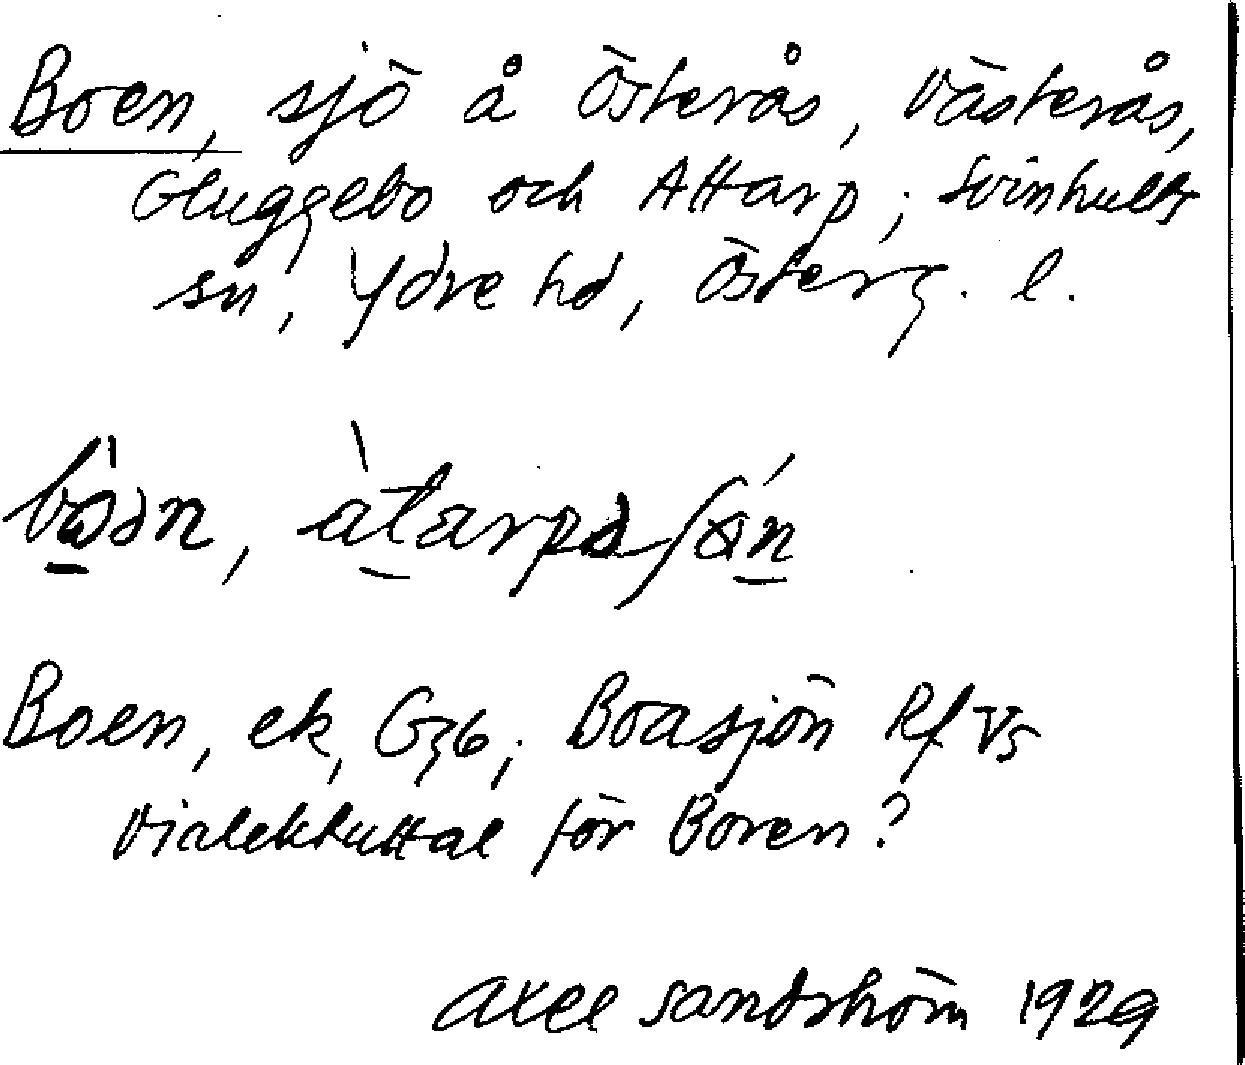 Boen, sjö å Österås, Västerås,
Gluggebo och Attarp; Svinhults
sn, Ydre hd, Österg. l.
Boen, ek, G36; Boasjön Rf Vs
Dialektuttal för Boren?
Axel Sandström 1929